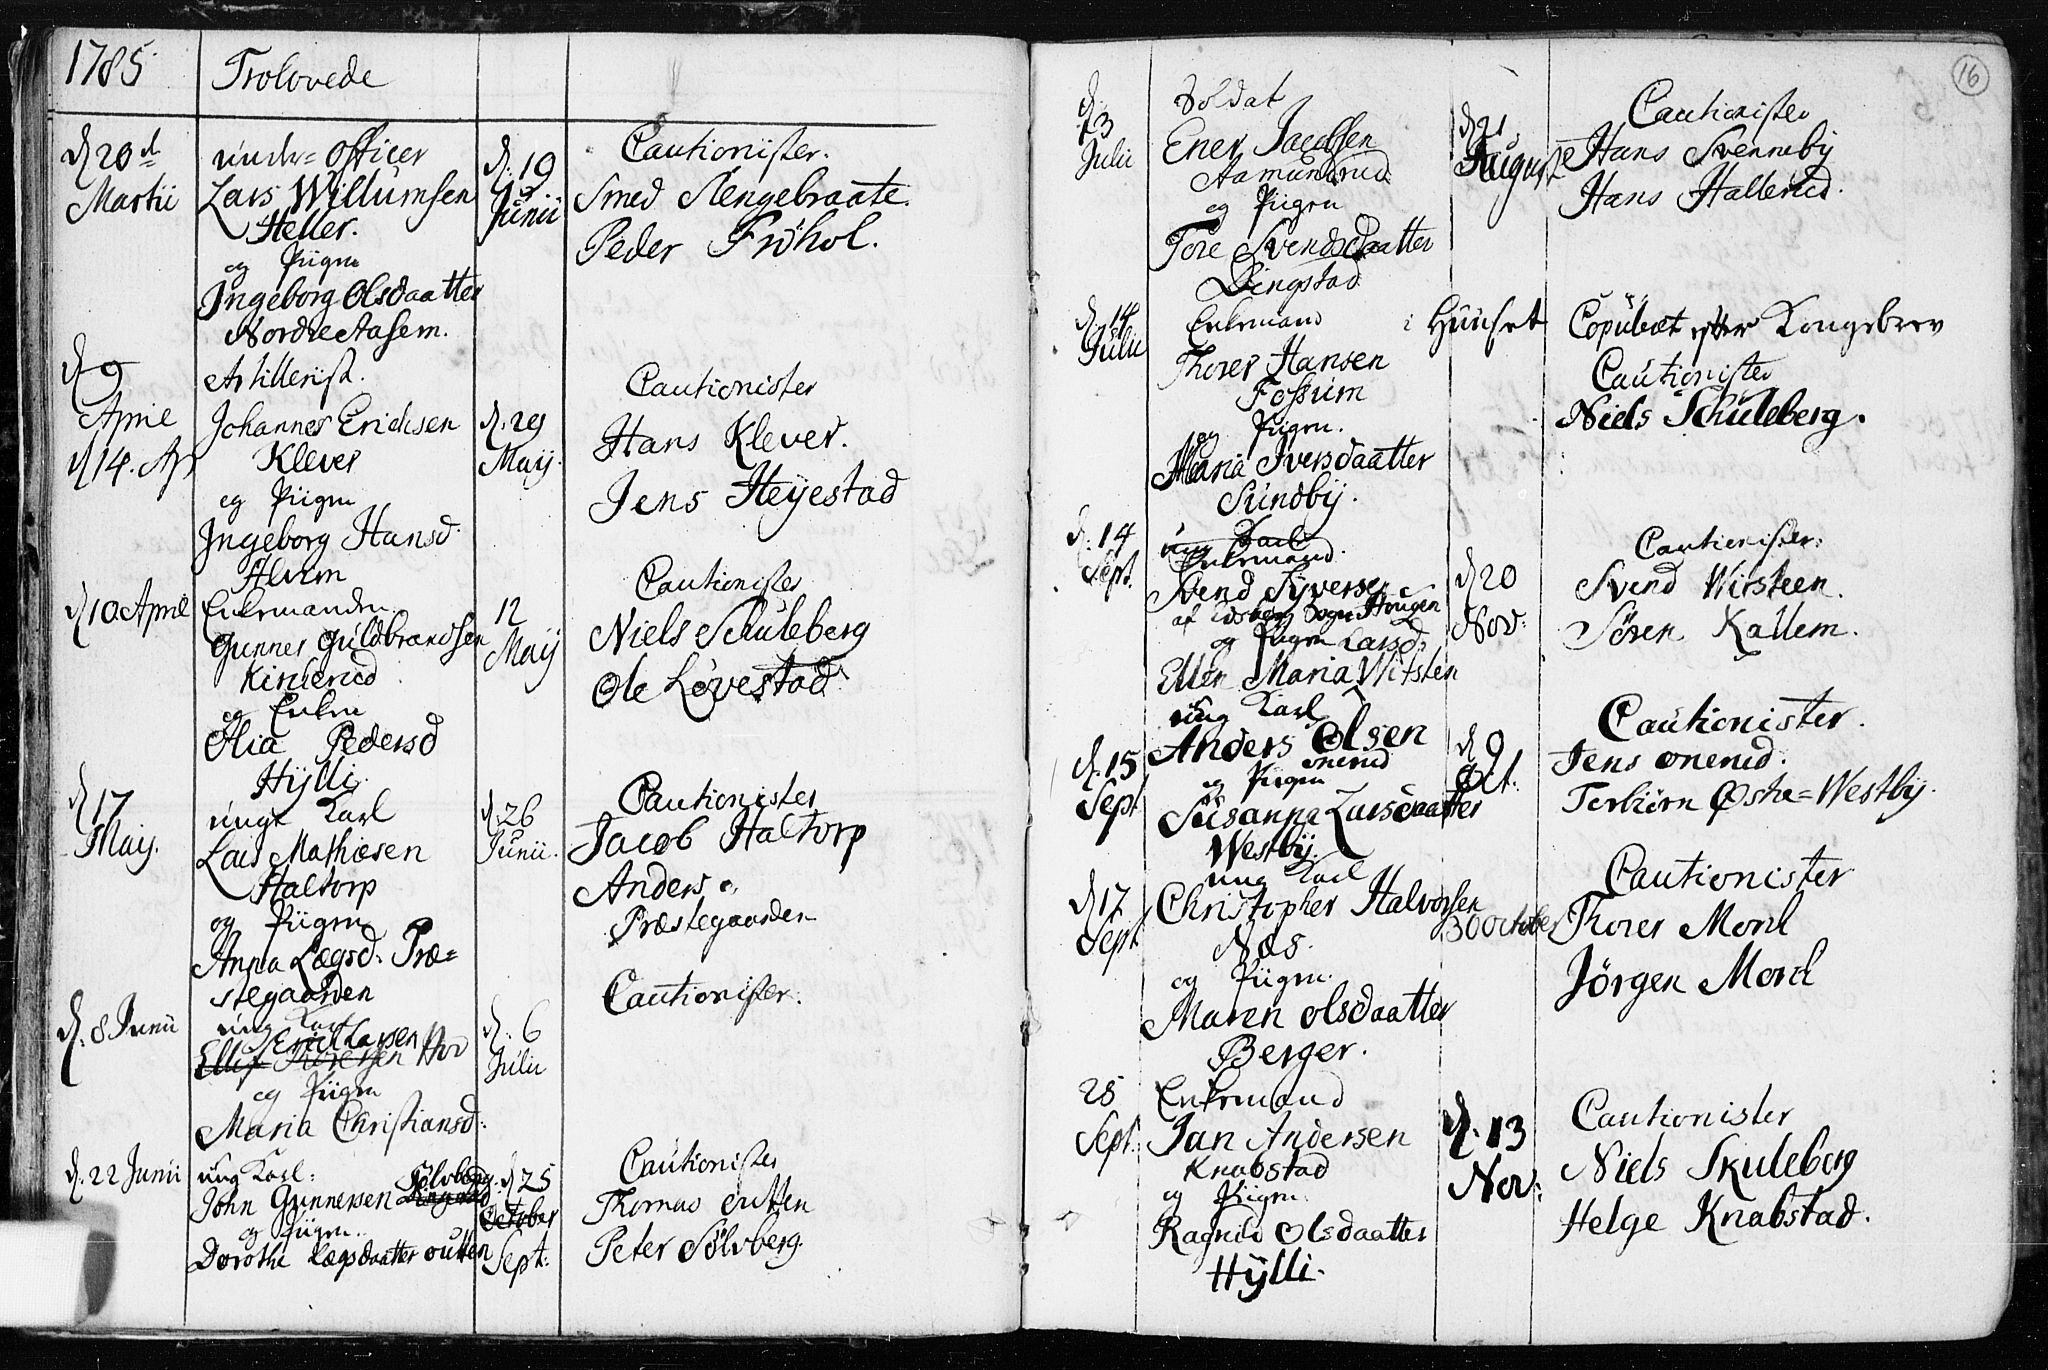 1785
Trolovede
d. 20 d Martii
under= Officer
Lars Willumsen
Heller.
og Piigen
Ingeborg Olsdaatter
Nordre Aasem.
d. 19 Junii
Cautionister.
Smed Slengebraate.
Peder Frøhol.
d. 9 Aprie
d 14. Apr
Artillerist.
Johannes Erichsen
Klever
og Piigen
Ingeborg Hansd.
Alvim
d. 29 Maij.
Cautionister
Hans Klever.
Jens Heijestad
d 10 Aprie
Enkemanden
Gunner Guldbrandsen
Kinnerud
og Enken
Olia Pedersd
Hijlli.
12 Maij
Cautionister
Niels Schuleberg
Ole Løvestad
d. 17 Maij.
unge Karl
Lars Mathiesen
Haltorp
og Piigen
Anna Lægsd. Præ=
stegaarden
d. 26 Junii.
Cautionister
Jacob Haltorp
Anders
Præstegaarden
d. 8 Junii
ung Karl
Erich Larsen
Ellef Torersen Moe
og Piigen
Maria Christiansd.
d. 6 Julii
Cautionister.
d. 22 Junii
ung Karl: Sølvberg
John Gunnersen Dingstad
og Piigen.
Dorothe Lægsdaatter Outten
d 25 October
Sept.
Cautionister
Thomas Outten
Peter Sølvberg.
16
d. 3 Julii
Soldat
Ener Jacobsen
Aamundrud
og Piigen
Tore Svendsdaatter
Dingstad
d 21 Auguste
Cautionister
Hans Svennebij
Hans Hallerud.
d. 14 Julii
Enkemand
Thorer Hansen
Fossum
og Piigen.
Maria Iversdaatter
Sundbij.
i Huuset
Copuleret efter Kongebrev
Cautionister
Niels Schuleberg.
d. 14 Sept.
ung Karl
Enkemand.
Svend Syversen
af Sogn Haugen
og Piigen Larsd.
Ellen Maria Witsten
d 20 Nov.
Cautionister.
Svend Witsteen.
Sören Kallem.
d. 15 Sept
ung Karl
Anders Olsen
Onerud
og Piigen
Susanna Larsdaatter
Westbij.
d. 9 Oct.
Cautionister.
Jens Onerud.
Torbiörn Østre=Westbij.
d 17 Sept
ung Karl
Christopher Halvorsen
Næs.
og Piigen.
Maren Olsdaatter
Berger.
30 October
Cautionister
Thorer Morl
Jörgen Morl
25 Sept.
Enkemand
Jan Andersen
Knabstad
og Piigen.
Ragnild Olsdaatter
Hijlli.
d. 13 Nov.
Cautionister
Niels Skuleberg
Helge Knabstad.